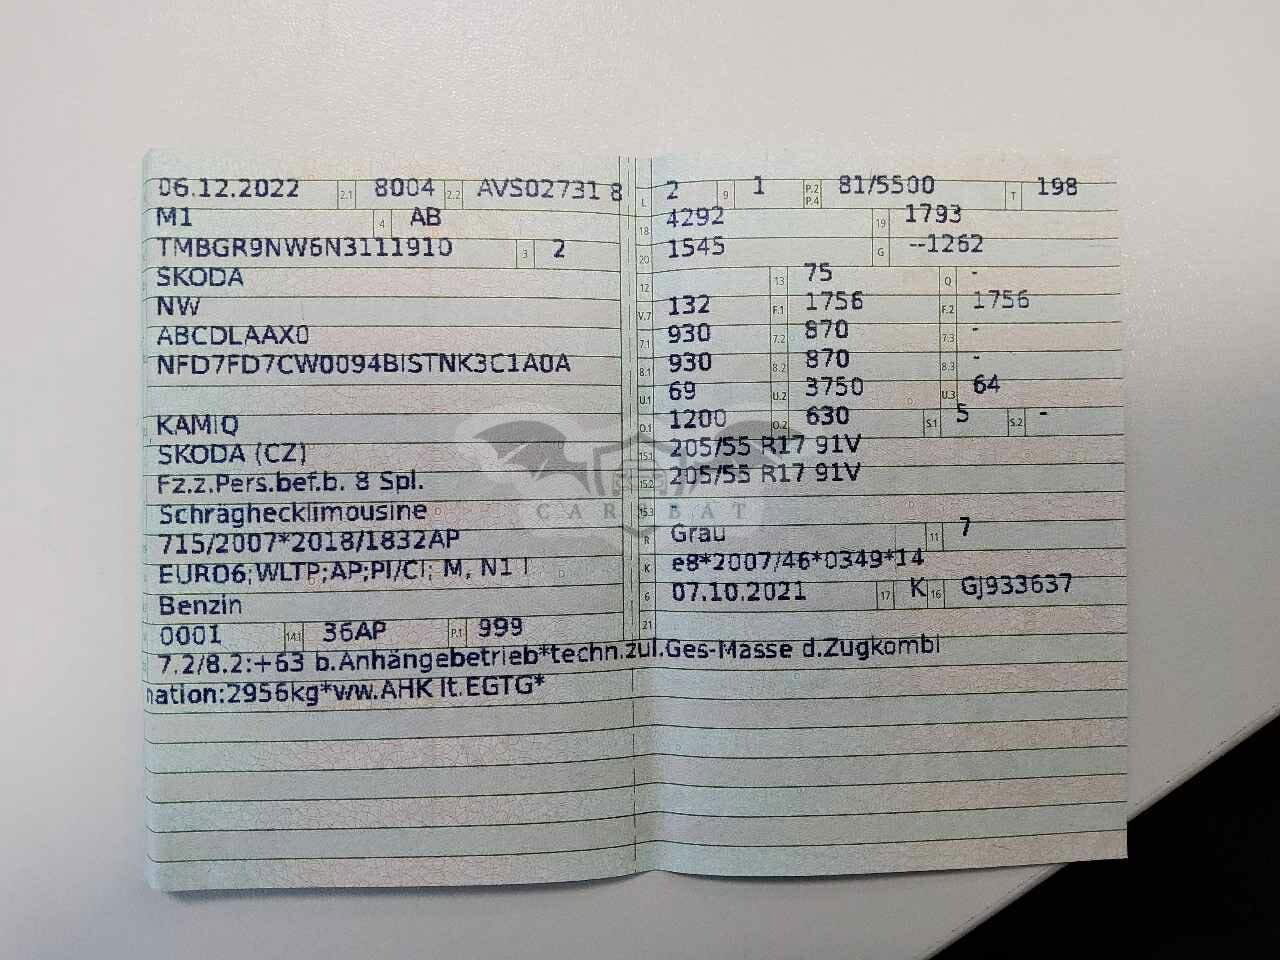 06.12.2022 2.1 8004 2.2 AVS02731 8
M1 4 AB
TMBGR9NW6N3111910 3 2
SKODA
NW
ABCDLAAX0
NFD7FD7CW0094BISTNK3C1A0A
KAMIQ
SKODA (CZ)
Fz.z.Pers.bef.b. 8 Spl.
Schräghecklimousine
715/2007*2018/1832AP
EURO6;WLTP;AP;PI/CI; M, N1 I
Benzin
0001 14.1 36AP P.1 999
L 2 9 1 P.2 P.4 81/5500 T 198
18 4292 19 1793
20 1545 G --1262
12 13 75 Q -
V.7 132 F.1 1756 F.2 1756
7.1 930 7.2 870 7.3 -
8.1 930 8.2 870 8.3 -
U.1 69 U.2 3750 U.3 64
O.1 1200 O.2 630 S.1 5 S.2 -
15.1 205/55 R17 91V
15.2 205/55 R17 91V
15.3 -
CAR BAT
R Grau 11 7
K e8*2007/46*0349*14
6 07.10.2021 17 K 16 GJ933637
21
7.2/8.2:+63 b.Anhängebetrieb*techn.zul.Ges-Masse d.Zugkombi
nation:2956kg*ww.AHK lt.EGTG*